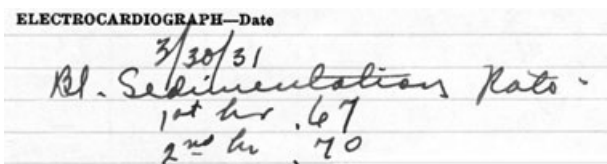 ELECTROCARDIOGRAPH—Date
3/30/31
Bl. Sedimentation Rate -
1st hr .67
2nd hr .70